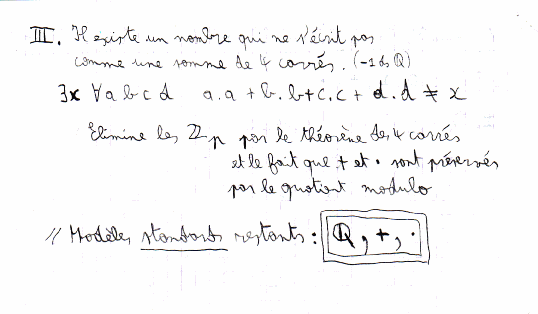 III. Il existe un nombre qui ne s'écrit pas
comme une somme de 4 carrés. (-1 ds Q)
∃x ∀a b c d a.a + b.b + c.c + d.d ≠ x
Elimine les ℤp par le théorème des 4 carrés
et le fait que + et · sont préservés
par le quotient modulo
// Modèles standards restants : ℚ, +, ·